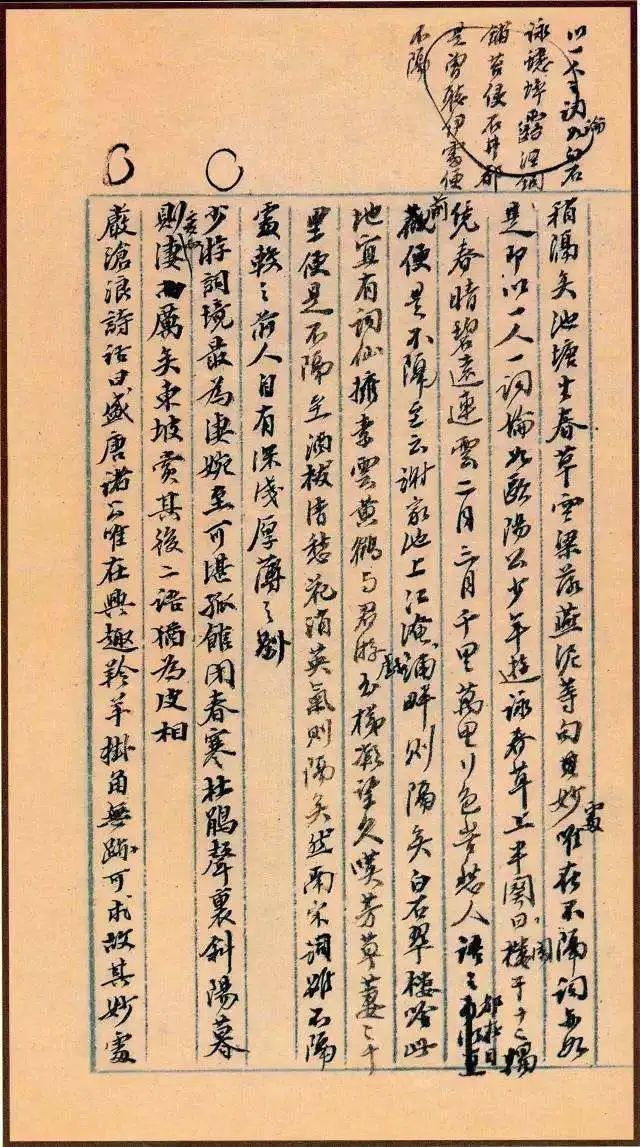 以一人之詞論如白石
詠蟋蟀露溼銅
鋪苔侵石井都
是曾聽伊處便
不隔
稍隔矣池塘生春草空梁落燕泥等句其妙處唯在不隔詞亦如
是即以一人一詞論如歐陽公少年遊詠春草上半闋曰闌干十二獨
凭春晴碧遠連雲二月三月千里萬里行色苦愁人語語都在目
前便是不隔至云謝家池上江淹浦畔則隔矣白石翠樓吟此
地宜有詞仙擁素雲黃鶴與君遊戲玉梯凝望久嘆芳草萋萋千
里便是不隔至酒祓清愁花消英氣則隔矣然南宋詞雖不隔
處較之前人自有深淺厚薄之別
少游詞境最為淒婉至可堪孤館閉春寒杜鵑聲裏斜陽暮
則變而淒厲矣東坡賞其後二語猶為皮相
嚴滄浪詩話曰盛唐諸公唯在興趣羚羊掛角無跡可求故其妙處